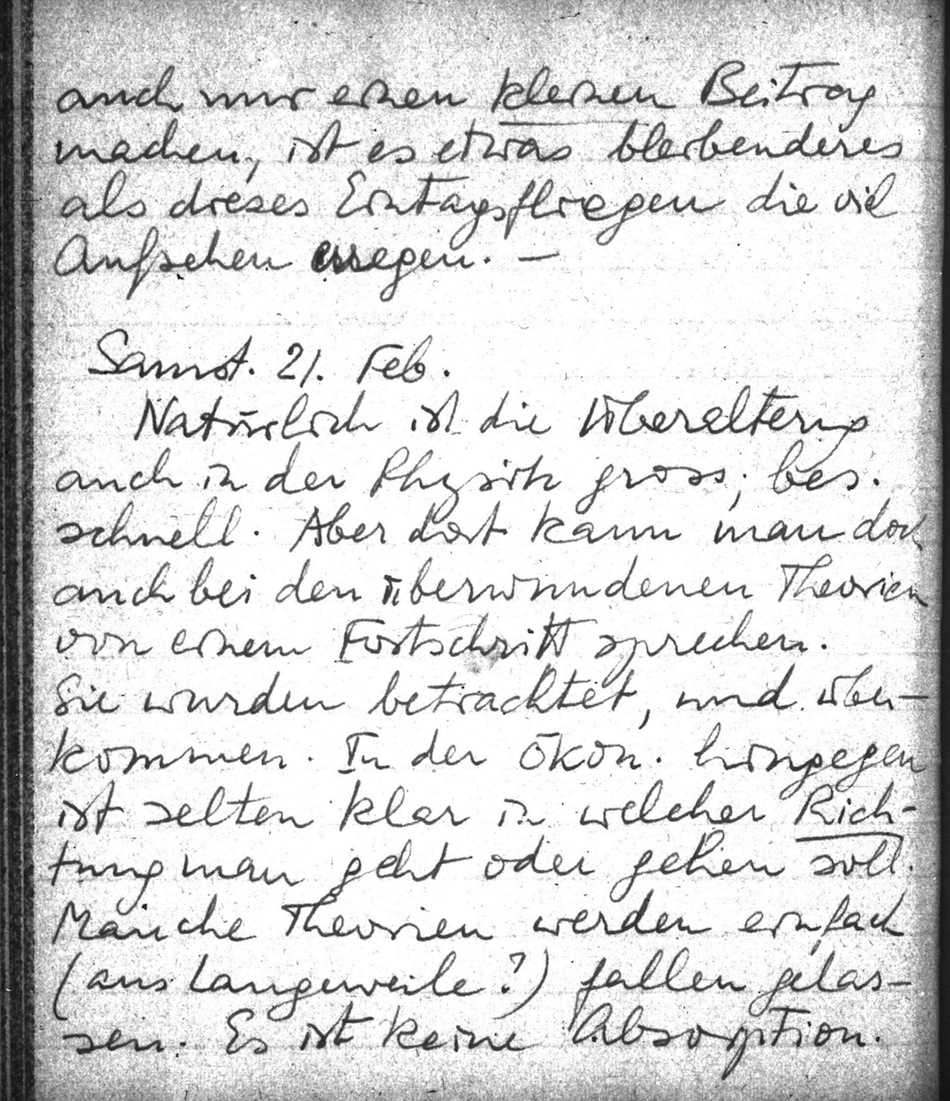 auch nur einen kleinen Beitrag
machen, ist es etwas bleibenderes
als dieses Eintagsfliegen die viel
Aufsehen erregen. –
Samst. 21. Feb.
Natürlich ist die Überalterung
auch in der Physik gross, bes.
schnell. Aber dort kann man doch
auch bei den überwundenen Theorien
von einem Fortschritt sprechen.
Sie wurden betrachtet, und über-
kommen. In der Ökon. hingegen
ist selten klar in welcher Rich-
tung man geht oder gehen soll.
Manche Theorien werden einfach
(aus Langeweile?) fallen gelas-
sen. Es ist keine Absorption.